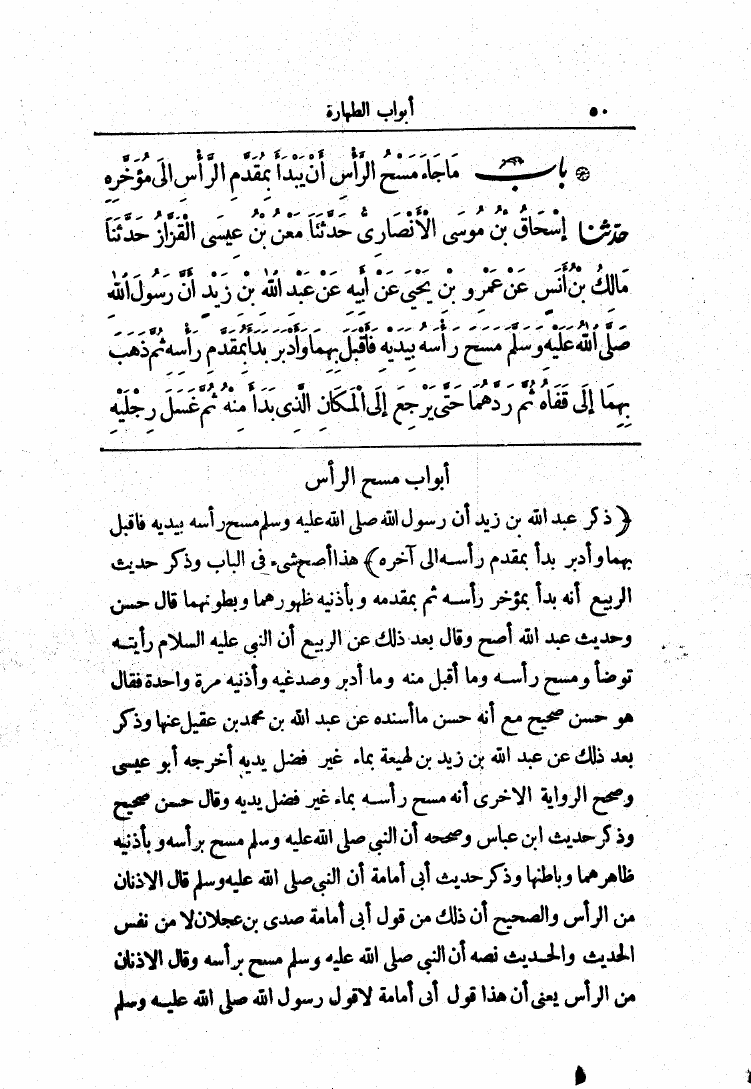 ٥٠ أبواب الطهارة
باب مَا جَاءَ مَسْحُ الرَّأْسِ أَنْ يَبْدَأَ بِمُقَدَّمِ الرَّأْسِ إِلَى مُؤَخَّرِهِ
حدّثنا إِسْحَاقُ بْنُ مُوسَى الْأَنْصَارِىُّ حَدَّثَنَا مَعْنُ بْنُ عِيسَى الْقَزَّازُ حَدَّثَنَا
مَالِكُ بْنُ أَنَسٍ عَنْ عَمْرِو بْنِ يَحْيَى عَنْ أَبِيهِ عَنْ عَبْدِ اللهِ بْنِ زَيْدٍ أَنَّ رَسُولَ اللهِ
صَلَّى اللهُ عَلَيْهِ وَسَلَّمَ مَسَحَ رَأْسَهُ بِيَدَيْهِ فَأَقْبَلَ بِهِمَا وَأَدْبَرَ بَدَأَ بِمُقَدَّمِ رَأْسِهِ ثُمَّ ذَهَبَ
بِهِمَا إِلَى قَفَاهُ ثُمَّ رَدَّهُمَا حَتَّى يَرْجِعَ إِلَى الْمَكَانِ الَّذِى بَدَأَ مِنْهُ ثُمَّ غَسَلَ رِجْلَيْهِ
أبواب مسح الرأس
﴿ ذكر عبد الله بن زيد أن رسول الله صلى الله عليه وسلم مسح رأسه بيديه فاقبل
بهما وأدبر بدأ بمقدم رأسه الى آخره ﴾ هذا أصح شىء فى الباب وذكر حديث
الربيع أنه بدأ بمؤخر رأسه ثم بمقدمه وبأذنيه ظهورهما وبطونهما قال حسن
وحديث عبد الله أصح وقال بعد ذلك عن الربيع أن النبي عليه السلام رأيته
توضأ ومسح رأسه وما أقبل منه وما أدبر وصدغيه وأذنيه مرة واحدة فقال
هو حسن صحيح مع أنه حسن ما أسنده عن عبد الله بن محمد بن عقيل عنها وذكر
بعد ذلك عن عبد الله بن زيد بن لهيعة بماء غير فضل يديه أخرجه أبو عيسى
وصحح الرواية الاخرى أنه مسح رأسه بماء غير فضل يديه وقال حسن صحيح
وذكر حديث ابن عباس وصححه أن النبي صلى الله عليه وسلم مسح برأسه وبأذنيه
ظاهرهما وباطنها وذكر حديث أبى أمامة أن النبي صلى الله عليه وسلم قال الاذنان
من الرأس والصحيح أن ذلك من قول أبى أمامة صدى بن عجلان لا من نفس
الحديث والحديث نصه أن النبي صلى الله عليه وسلم مسح برأسه وقال الاذنان
من الرأس يعنى أن هذا قول أبى أمامة لا قول رسول الله صلى الله عليه وسلم